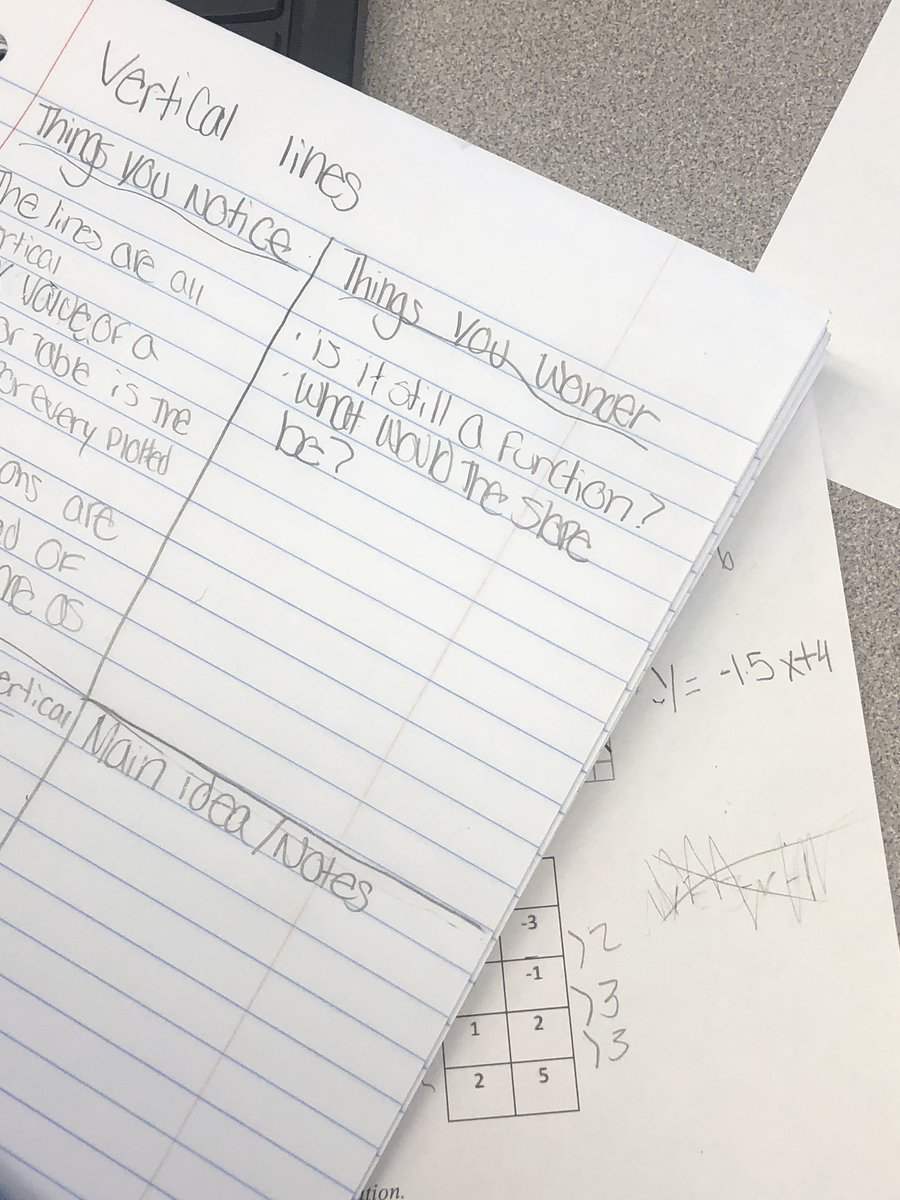 Vertical lines
Things you Notice
The lines are all
vertical
value of a
or Table is the
for every plotted
ons are
or
as
vertical
Things you Wonder
· is it still a function?
· What would the slope
be?
Main idea/Notes
b
y = -1.5x+4
-3
-1
1 2
2 5
)2
)3
)3
ution.